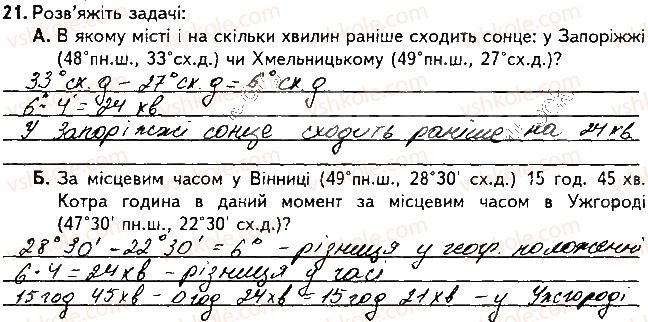 21. Розв'яжіть задачі:
А. В якому місті і на скільки хвилин раніше сходить сонце: у Запоріжжі
(48°пн.ш., 33°сх.д.) чи Хмельницькому (49°пн.ш., 27°сх.д.)?
33°сх.д – 27°сх.д = 6°сх.д
6·4 = 24 хв
У Запоріжжі сонце сходить раніше на 24 хв.
Б. За місцевим часом у Вінниці (49°пн.ш., 28°30' сх.д.) 15 год. 45 хв.
Котра година в даний момент за місцевим часом в Ужгороді
(47°30' пн.ш., 22°30' сх.д.)?
28°30' – 22°30' = 6° – різниця у геогр. положенні
6·4 = 24хв – різниця у часі
15год 45хв – 0год 24хв = 15год 21хв – у Ужгороді